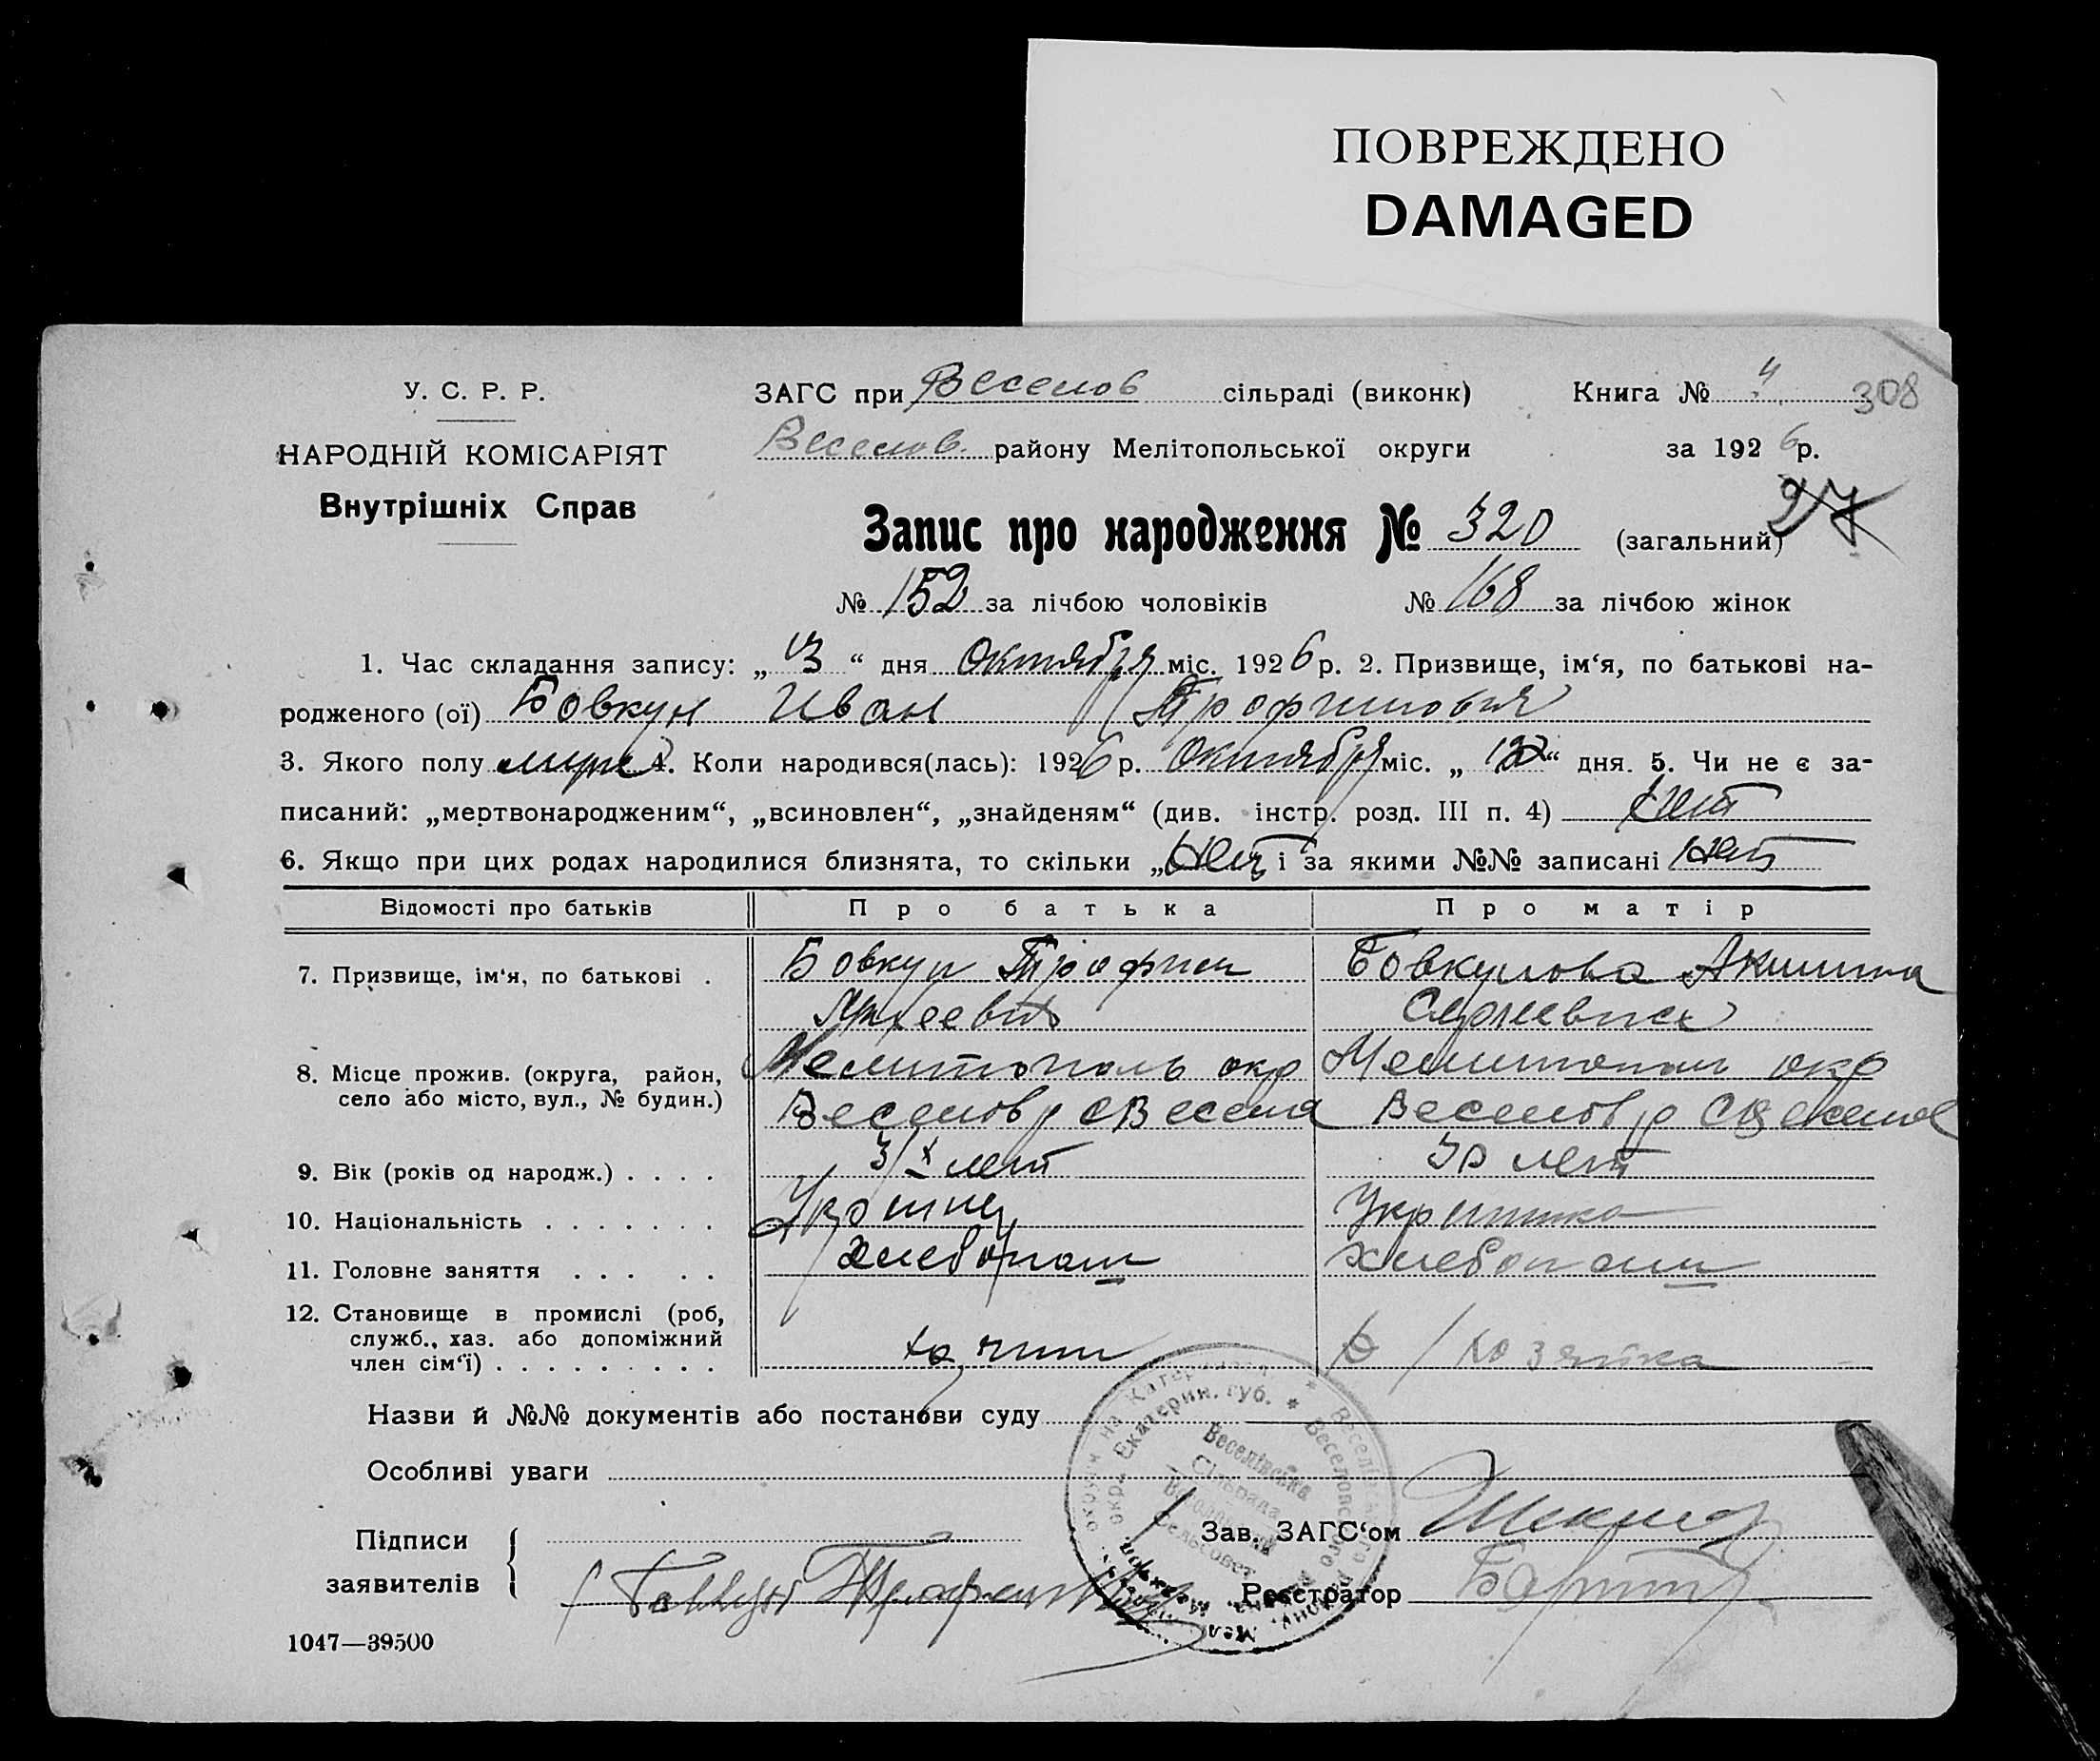 ПОВРЕЖДЕНО
DAMAGED
У. С. Р. Р.
НАРОДНІЙ КОМІСАРІЯТ
Внутрішніх Справ
ЗАГС при Веселов сільраді (виконк) Книга № 4 308
Веселов. району Мелітопольської округи за 1926р.
97
Запис про народження № 320 (загальний)
№ 152 за лічбою чоловіків № 168 за лічбою жінок
1. Час складання запису: „ “ дня Октября міс. 1926 р. 2. Призвище, ім‘я, по батькові на-
родженого (ої) Бовкун Иван Трофимович
3. Якого полу муж 4. Коли народився(лась): 1926 р. Октября міс. „ “ дня. 5. Чи не є за-
писаний: „мертвонародженим“, „всиновлен“, „знайденям“ (див. інстр. розд. III п. 4) Нет
6. Якщо при цих родах народилися близнята, то скільки „Нет і за якими №№ записані Нет
Відомості про батьків Про батька Про матір
7. Призвище, ім‘я, по батькові . Бовкун Трофим Бовкунова
Сергиевна
8. Місце прожив. (округа, район, село або місто, вул., № будин.) Мелитополь окр Мелитополь окр
Веселов р с Весела Веселов р с Весела
9. Вік (років од народж.) . . . . лет 30 лет
10. Національність . . . . . . . Украинка
11. Головне заняття . . . . . Хлебопаш Хлебопаш
12. Становище в промислі (роб, служб., хаз. або допоміжний член сім‘ї) . . . . . . . . . хозяйка
Назви й №№ документів або постанови суду
Особливі уваги
Веселівська
Сільрада
Сельсовет
Екатерин. губ.
Підписи заявителів Бовкун Трофим
Зав. ЗАГС‘ом
Реєстратор
1047—39500